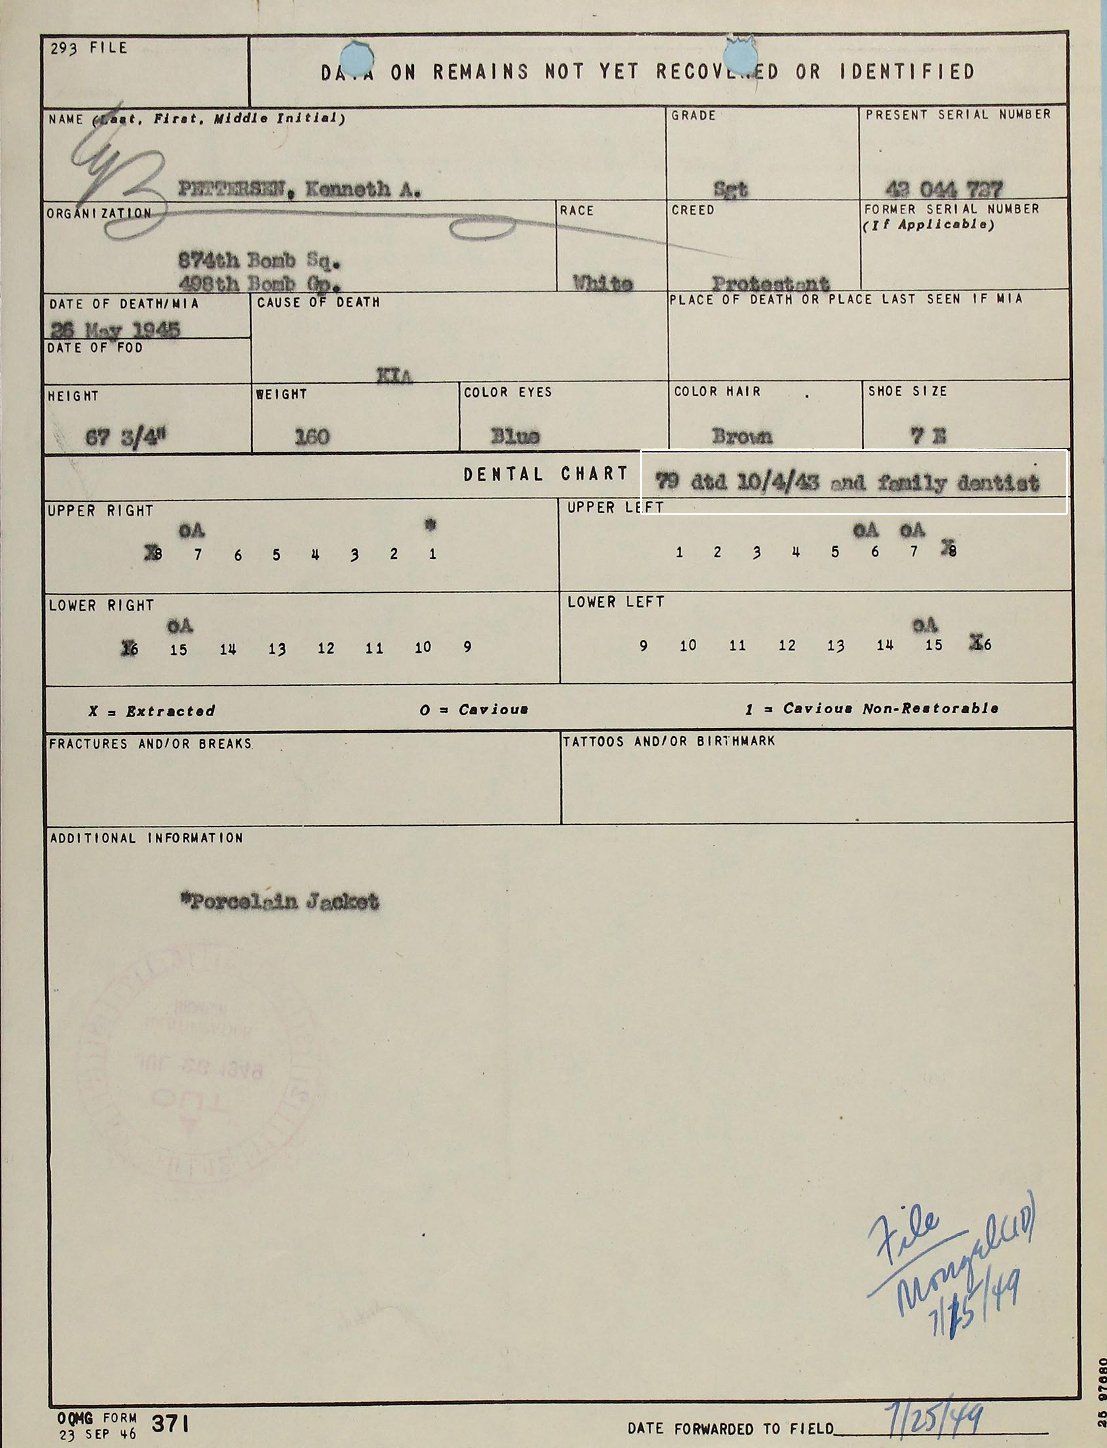 293 FILE
DATA ON REMAINS NOT YET RECOVERED OR IDENTIFIED
NAME (Last, First, Middle Initial)
PETTERSEN, Kenneth A.
GRADE
Sgt
PRESENT SERIAL NUMBER
42 044 727
ORGANIZATION
874th Bomb Sq.
498th Bomb Gp.
RACE
White
CREED
Protestant
FORMER SERIAL NUMBER
(If Applicable)
DATE OF DEATH/MIA
26 May 1945
DATE OF FOD
CAUSE OF DEATH
KIA
PLACE OF DEATH OR PLACE LAST SEEN IF MIA
HEIGHT
67 3/4"
WEIGHT
160
COLOR EYES
Blue
COLOR HAIR
Brown
SHOE SIZE
7 E
DENTAL CHART 79 dtd 10/4/43 and family dentist
UPPER RIGHT
oA *
X8 7 6 5 4 3 2 1
UPPER LEFT
oA oA
1 2 3 4 5 6 7 X8
LOWER RIGHT
oA
X16 15 14 13 12 11 10 9
LOWER LEFT
oA
9 10 11 12 13 14 15 X16
X = Extracted O = Cavious 1 = Cavious Non-Restorable
FRACTURES AND/OR BREAKS
TATTOOS AND/OR BIRTHMARK
ADDITIONAL INFORMATION
*Porcelain Jacket
OUT
File
7/25/49
OQMG FORM 371
23 SEP 46
DATE FORWARDED TO FIELD 7/25/49
25 97680